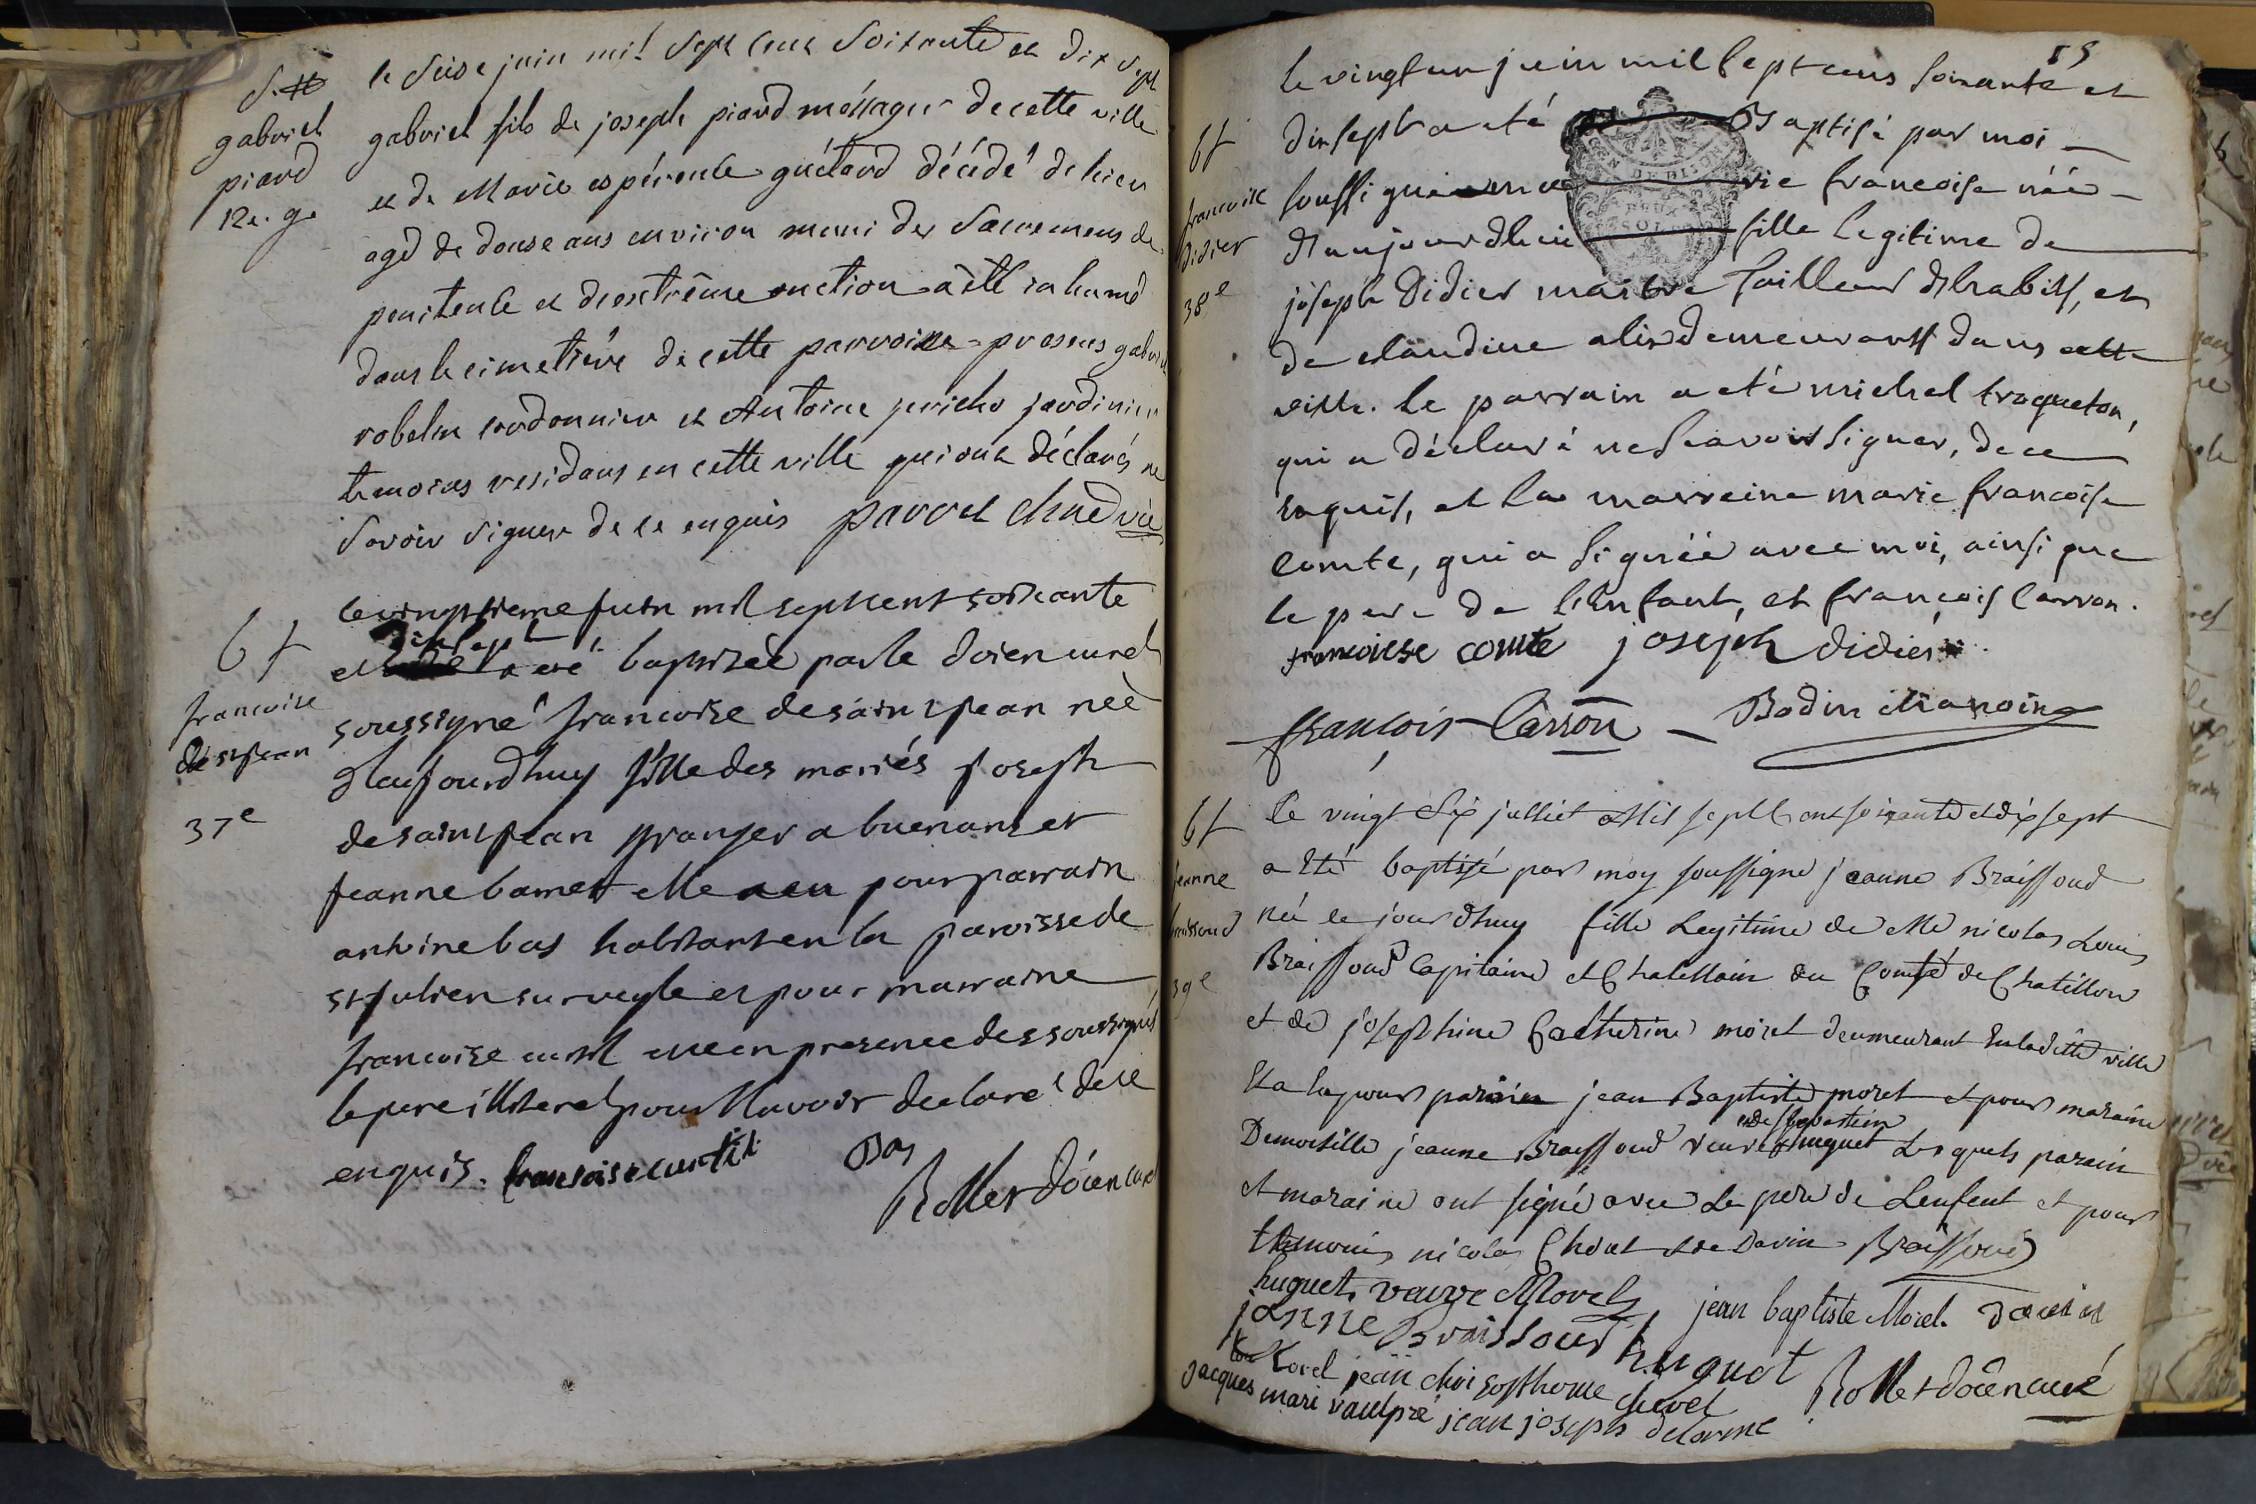 gabriel
piard
12e. g.
le seise juin mil sept cent soixante et dix sept
gabriel fils de joseph piard méssager de cette ville
et de Marie espérence guétard décédé d'hier
agé de douse ans environ muni des sacremens de
penitence et d'extrême onction a été inhumé
dans le cimetière de cette parroisse presens gabriel
robelin cordonnier et Antoine jericho jardinier
temoins residans en cette ville qui ont déclarés ne
savoir signer de ce enquis parret
bt
francoise
de st jean
37e
le vingtieme juin mil sept cent soixante
et dix sept a eté baptisée par le doien curé
soussigné francoise de saint jean née
d'aujourdhuy fille des mariés joseph
de saint jean granger a buenans et
jeanne bamet elle a eu pour parrain
antoine bas habitant en la paroisse de
st julien sur veyle et pour marraine
francoise curtil en presence des soussignés
le pere illiteré pour l'avoir declaré de ce
enquis. francoise curtil Bas
Rollet doien curé
55
bt
francoise
didier
38e
le vingt un juin mil sept cens soixante et
dix sept a eté Baptisé par moi
soussigné marie francoise néé
d'aujourdhui fille legitime de
joseph Didier maitre tailleur d'habits, et
de claudine alix demeurants dans cette
ville. le parrain a eté michel traqueton,
qui a déclaré ne scavoir signer, de ce
enquis, et la marreine marie francoise
comte, qui a signéé avec moi, ainsi que
le pere de l'Enfant, et francois carron.
francoise comte joseph didier
françois Carron Bodin chanoine
bt
jeanne
braissoud
39e
le vingt six julliet Mil sept cent soixante et dix sept
a été baptisé par moy soussigné jeanne Braissoud
née ce jourdhuy fille Legitime de Me nicolas Louis
Braissoud Capitaine et Chatellain du Comté de Chatillon
et de josephine Catherine morel deumeurant en ladite ville
Et a eu pour parain jean Baptiste morel et pour maraine
Demoiselle jeanne Braissoud veuve huguet Lesquels parain
et maraine ont signé avec Le pere de Lenfent et pour
themoins nicolas Chont et de Davin Braissoud
huguet, veuve Morel jean baptiste Morel
janne Braissoud huguet
morel jean chrisosthome chevel Rollet doien curé
Jacques mari vaulpré jean joseph delorme